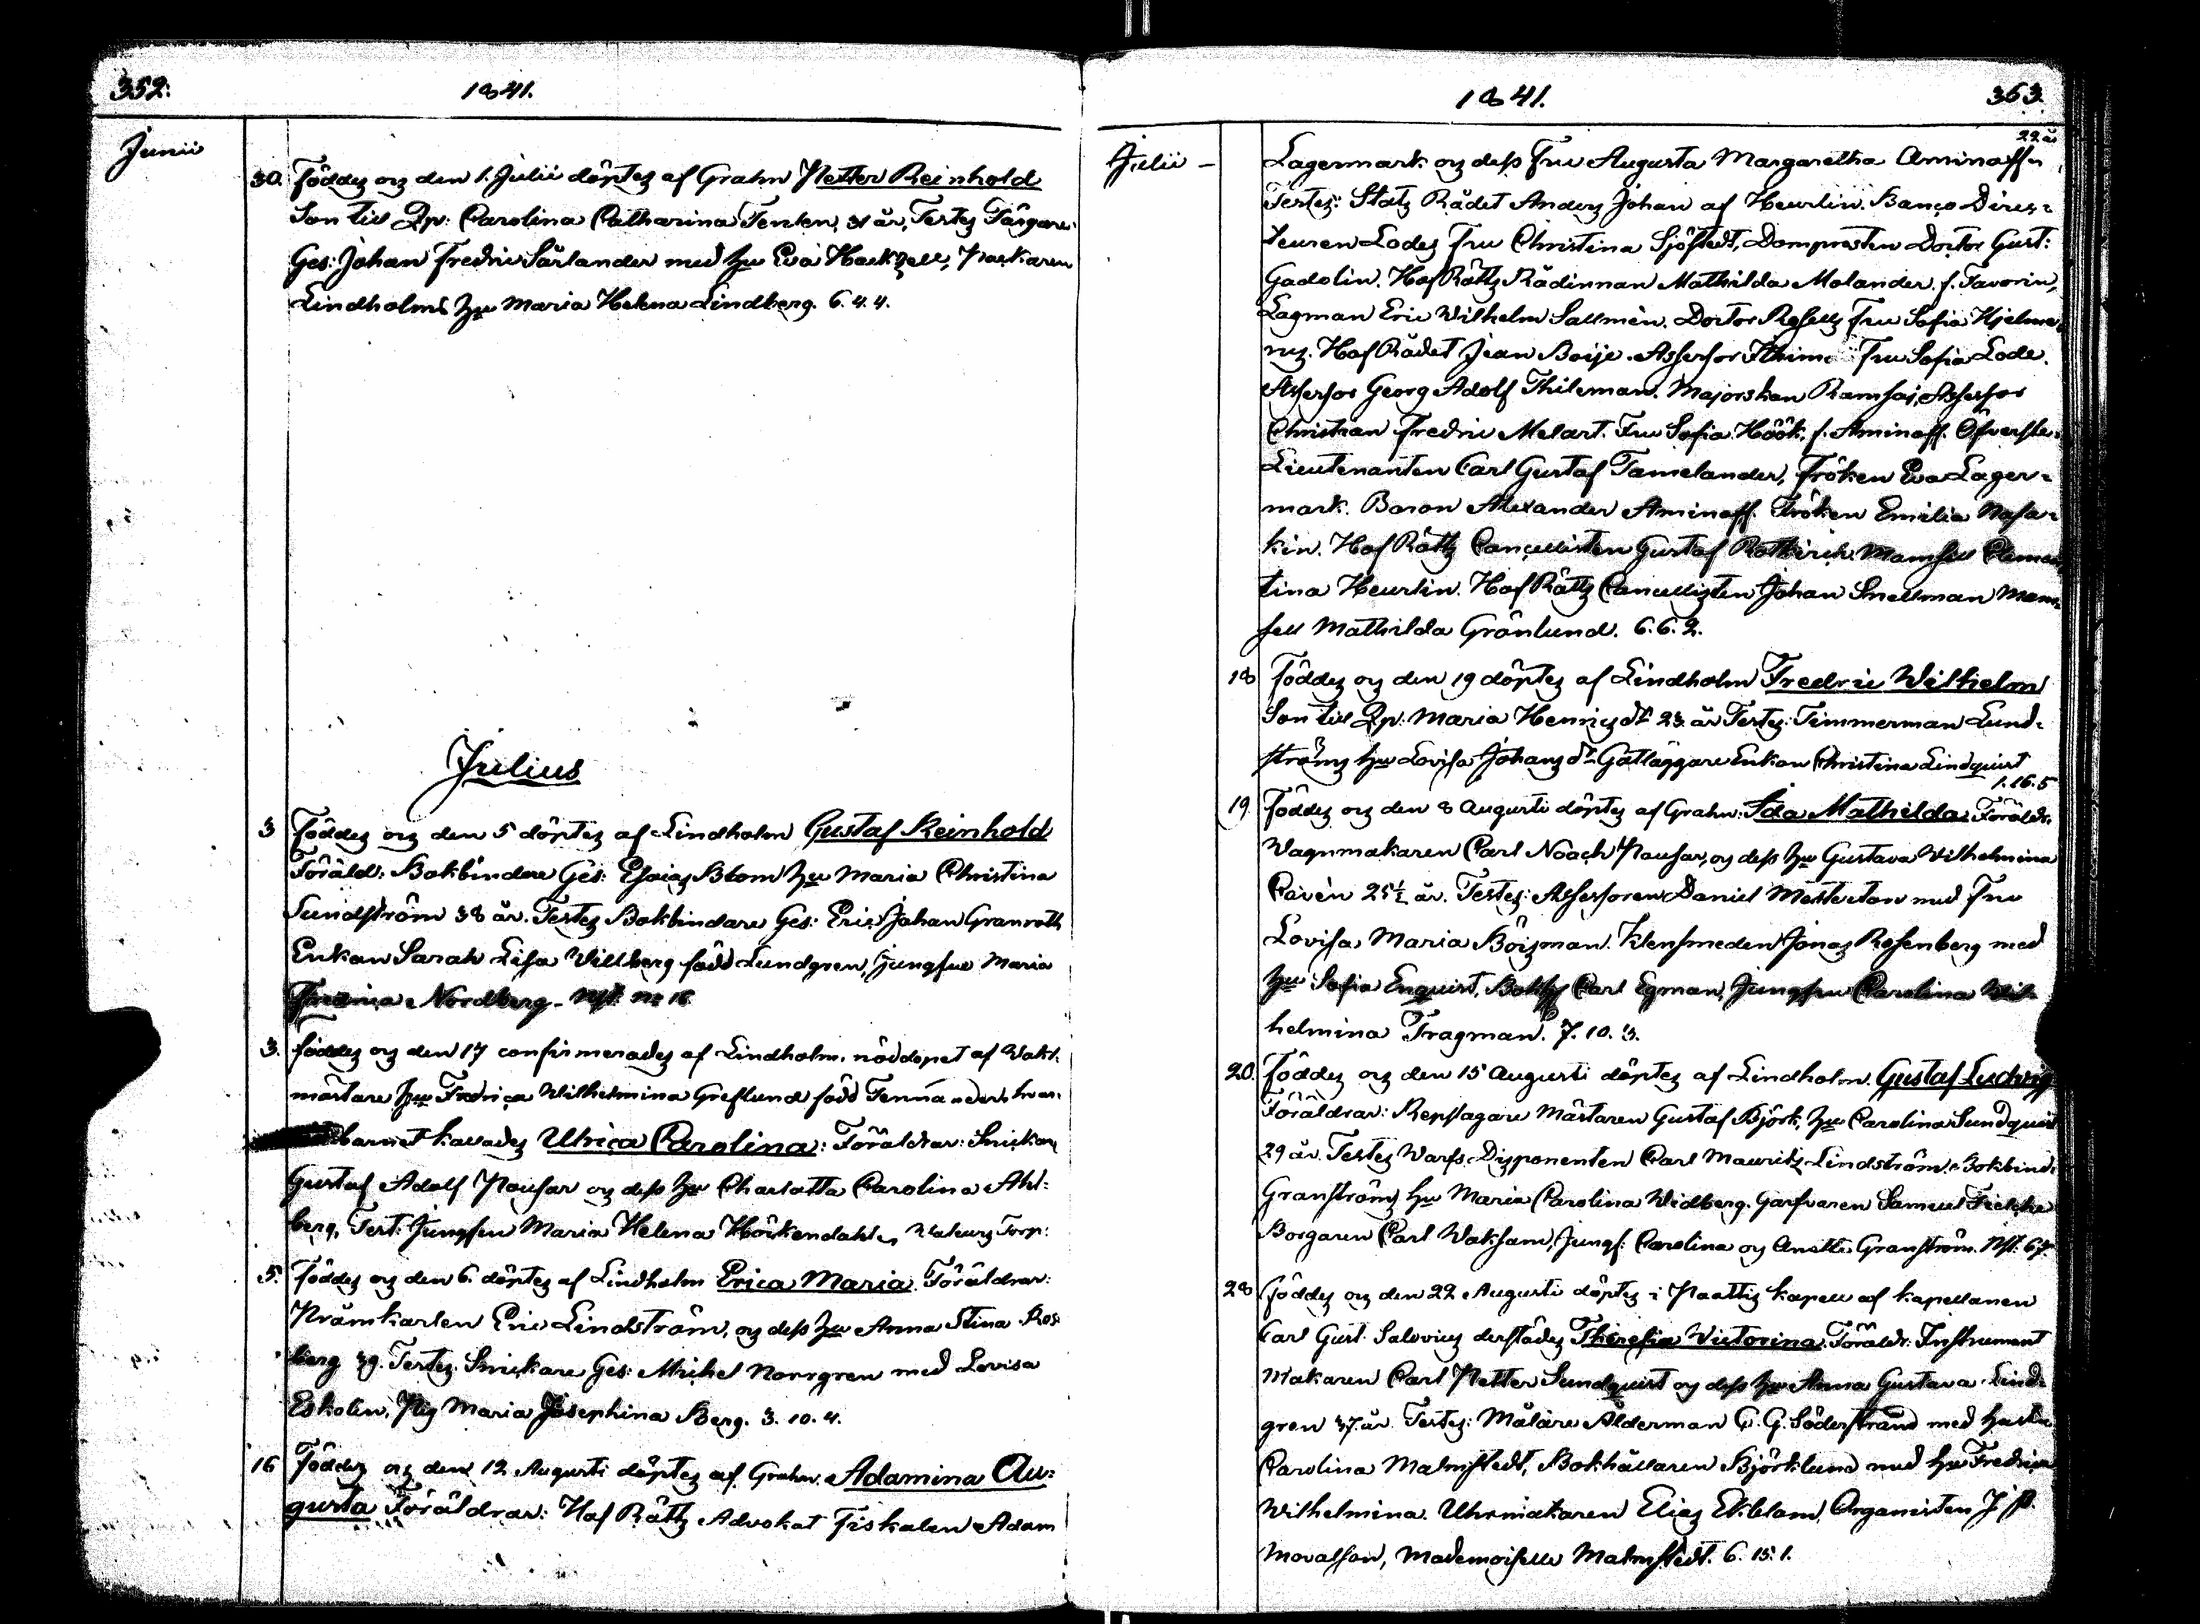 352:
1841.
Junii
30. Föddes och den 1. Julii döptes af Grahn Petter Reinhold
Son till Qp: Carolina Catharina Tenlen, 31 år, Testes Färgare
Ges: Johan Fredric Särlander med hu Eva Hackzell, Packaren
Lindholms hu Maria Helena Lindberg. 6. 4. 4.
Julius
3 Föddes och den 5 döptes af Lindholm Gustaf Reinhold
Föräld: Bokbindare Ges: Esaias Blom hu Maria Christina
Sundström 38 år. Testes Bokbindare Ges: Eric Johan Granroth
Enkan Sarah Lisa Willberg född Lundgren, Jungfru Maria
Fredrica Nordberg
3. föddes och den 17 confirmerades af Lindholm. nöddopet af Vakt-
mästare hu Fredrica Wilhelmina Greflund född
barnet kallades Ulrica Carolina: Föräldrar: Snickare
Gustaf Adolf Pousar och dess hu Charlotta Carolina Ahl-
berg, Test: Jungfru Maria Helena Höckendahl
5. Föddes och den 6. döptes af Lindholm Erica Maria. Föräldrar:
Pråmkarlen Eric Lindström, och dess hu Anna Stina Ros
berg 39. Testes: Snickare Ges: Michel Norrgren med Lovisa
Eskolin, Pig Maria Josephina Berg. 3. 10. 4.
16 Föddes och den 12 Augusti döptes af Grahn. Adamina Au-
gusta Föräldrar: Hof Rätts Advokat Fiskalen Adam
1841.
363.
Julii – 22 år
Lagermark och dess Fru Augusta Margaretha Aminoff
Testes: Stats Rådet Anders Johan af Heurlin. Banco Direc-
teuren Lodes Fru Christina Sjöstedt, Domprosten Doctor Gust:
Gadolin. Hof Rätts Rådinnan Mathilda Molander f. Favorin,
Lagman Eric Wilhelm Sallmén. Doctor Fru Sofia Hjelme-
rus. Hof Rådet Jean Boije. Assessor Fru Sofia Lode.
Assessor Georg Adolf Thileman. Majorskan Ramsaj, Assessor
Christian Fredric Melart. Fru Sofia Höök, f. Aminoff. Öfverste-
Lieutenanten Carl Gustaf Tamelander, Fröken Eva Lager-
mark. Baron Alexander Aminoff. Fröken Emilia Nasa-
kin. Hof Rätts Cancellisten Gustaf Rotkirch. Mamsell Clemen-
tina Heurlin. Hof Rätts Cancellisten Johan Snellman Mam-
sell Mathilda Grönlund. 6. 6. 2.
18 Föddes och den 19 döptes af Lindholm Fredric Wilhelm
Son till Qp: Maria Henricsdr 23 år Testes: Timmerman Lund-
ströms hu Lovisa Johansdr Gatläggare Enkan Christina Lindquist
1. 16. 5
19. Föddes och den 8 Augusti döptes af Grahn: Ida Mathilda. Föräldr.
Vagnmakaren Carl Noach Pousar, och dess hu Gustava Wilhelmina
Cavén 25½ år. Testes: Assessoren Daniel Mesterton med Fru
Lovisa Maria Böisman. Klensmeden Jonas Rosenberg med
hu Sofia Enquist, Bokh Carl Egman, Jungfru Carolina Wil-
helmina Fragman. 7. 10. 3.
20. Föddes och den 15 Augusti döptes af Lindholm. Gustaf Ludvig
Föräldrar: Repslagare Mästaren Gustaf Björk, hu Carolina Sundquist
29 år. Testes Varfs-Disponenten Carl Mauritz Lindström. Bokbind.
Granströms hu Maria Carolina Widberg. Garfvaren Samuel
Borgaren Carl Waksam, Jungf: Carolina och Anette Granström.
28 föddes och den 22 Augusti döptes i Paattis kapell af kapellanen
Carl Gust. Salovius derstädes Theresia Victorina. Föräldr. Instrument
Makaren Carl Petter Sundquist och dess hu Anna Gustava Lind-
gren 37 år. Testes: Målare Ålderman C. G. Söderstrand med hustru
Carolina Malmstedt, Bokhållaren Björklund med hu Fredrica
Wilhelmina. Uhrmakaren Elias Ekblom, Organisten
Mademoiselle Malmstedt. 6. 15. 1.